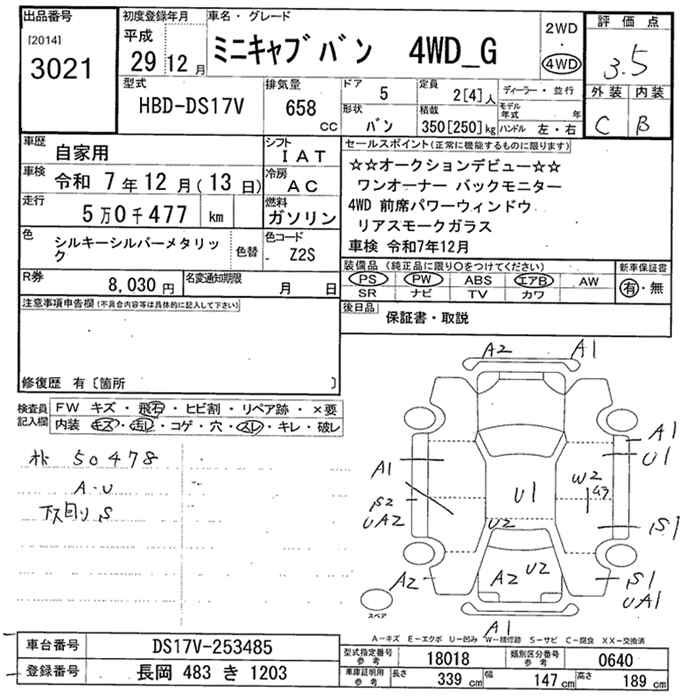 出品番号
[2014]
3021
初度登録年月
平成
29 12 月
車名・グレード
ミニキャブバン 4WD_G
2WD
・
4WD
評価点
3.5
外装 内装
C B
型式
HBD-DS17V
排気量
658 cc
ドア
5
形状
バン
定員
2[4]人
積載
350[250]kg
ディーラー・並行
モデル年式 年
ハンドル 左・右
車歴
自家用
シフト
IAT
車検
令和 7年12月(13日)
冷房
AC
走行
5万0千477 km
燃料
ガソリン
色
シルキーシルバーメタリック
色替
色コード
- Z2S
R券
8,030円
名変通知期限
月 日
注意事項申告欄(不具合内容等は具体的に記入して下さい)
修復歴 有〔箇所 〕
セールスポイント(正常に機能するものに限ります)
☆☆オークションデビュー☆☆
ワンオーナー バックモニター
4WD 前席パワーウィンドウ
リアスモークガラス
車検 令和7年12月
装備品(純正品に限り○をつけてください)
PS PW ABS エアB AW
SR ナビ TV カワ
新車保証書
有・無
後日品
保証書・取説
検査員記入欄
FW キズ・飛石・ヒビ割・リペア跡・×要
内装 キズ・汚レ・コゲ・穴・スレ・キレ・破レ
50478
A・U
下回り S
A2 A1
A1
U1
A1
W2
U1
S2
UA2
U2
S1
A2
A2 U2
S1
UA1
A1
スペア
A-キズ E-エクボ U-凹み W-補修跡 S-サビ C-腐食 XX-交換済
車台番号
DS17V-253485
登録番号
長岡 483 き 1203
型式指定番号
参考
18018
類別区分番号
参考
0640
車庫証明用
参考
長さ 339 cm
幅 147 cm
高さ 189 cm